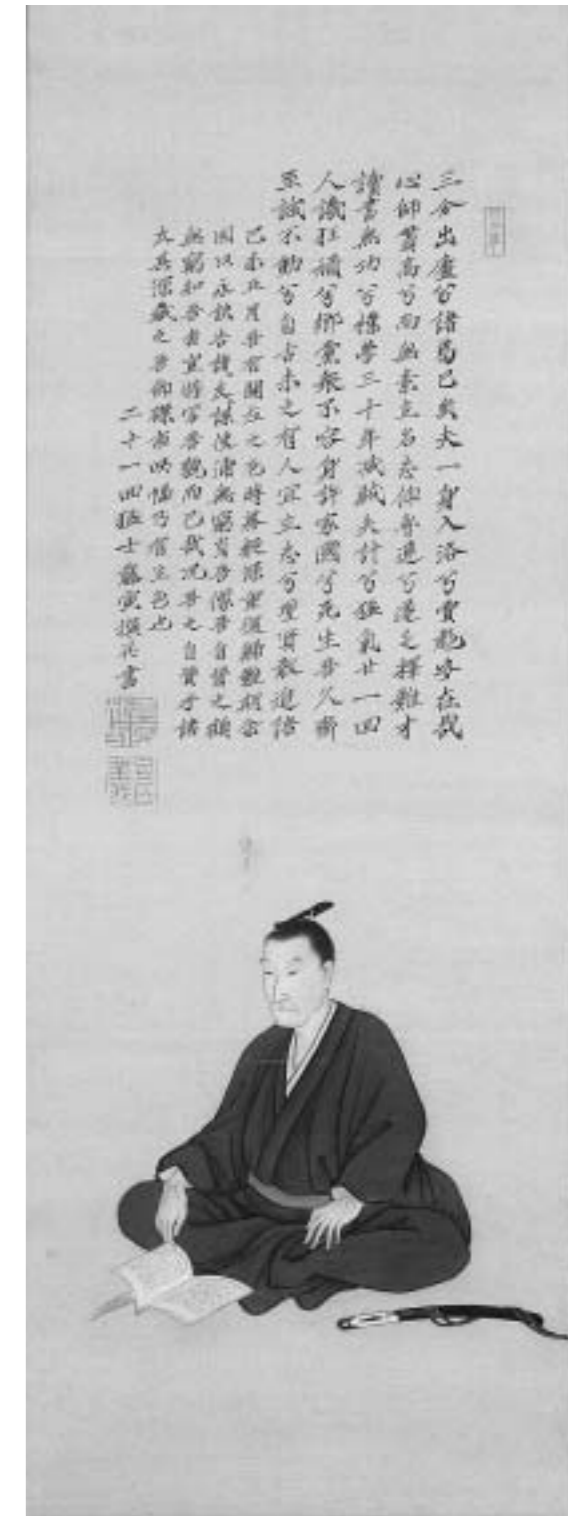 三分出廬兮諸葛已矣夫一身入洛兮賈彪安在哉
心師貫高兮而無素立名志仰魯連兮遂乏釋難才
讀書無功兮樸學三十年滅賊失計兮猛氣廿一回
人譏狂頑兮鄉黨衆不容身許家國兮死生吾久齊
至誠不動兮自古未之有人宜立志兮聖賢敢追陪
己未五月吾有關左之厄時幕疑深重復歸難期余
因以永訣告諸友謀使浦無窮肖吾像吾自贊之顧
無窮知吾者豈特寫吾貌而已哉況吾之自贊乎諸
友其深藏之吾卽磔市此幅乃有生色也
二十一回猛士藤寅撰幷書